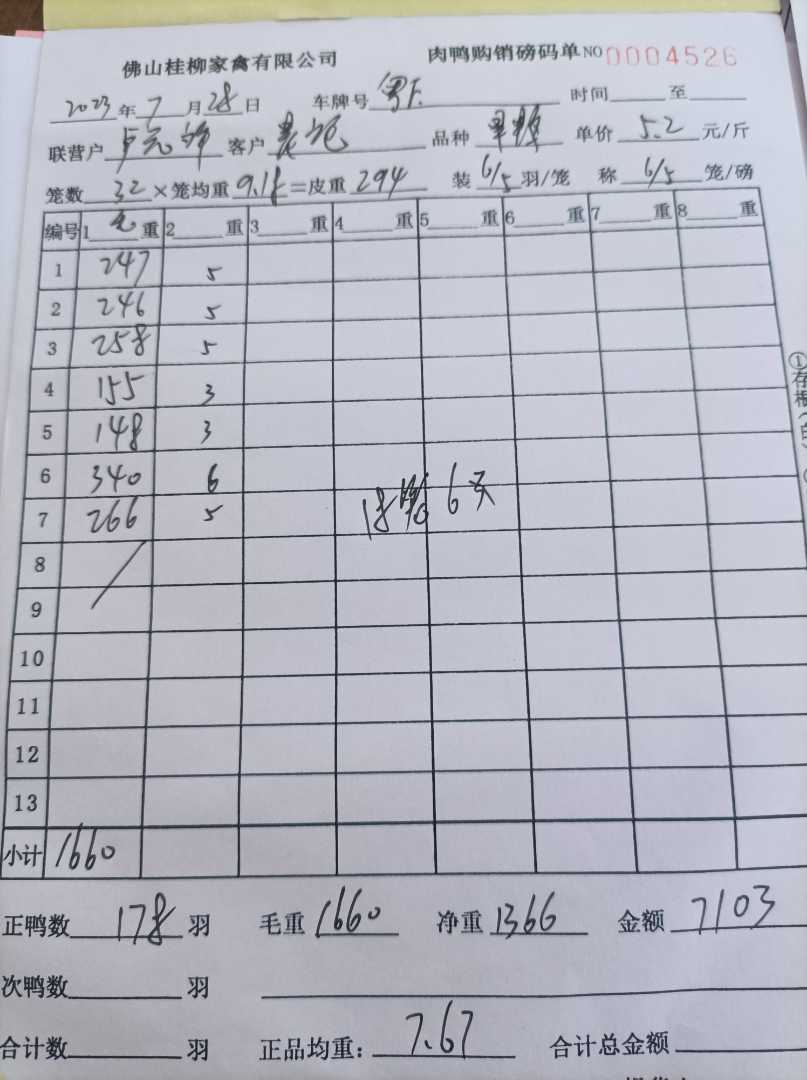 佛山桂柳家禽有限公司 肉鸭购销磅码单 NO 0004526
2023年7月28日 车牌号 粤 时间 至
联营户 客户 品种 单价 5.2 元/斤
笼数 32 × 笼均重 9.18 = 皮重 294 装 6/5 羽/笼 称 6/5 笼/磅
编号 1 毛 重 2 重 3 重 4 重 5 重 6 重 7 重 8 重
1 247 5
2 246 5
3 258 5
4 155 3
5 148 3
6 340 6
7 266 5
18 6
8
9
10
11
12
13
小计 1660
①存根(白)
正鸭数 178 羽 毛重 1660 净重 1366 金额 7103
次鸭数 羽
合计数 羽 正品均重: 7.67 合计总金额